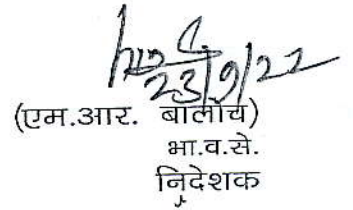 23/9/22
(एम.आर. बालोच)
भा.व.से.
निदेशक